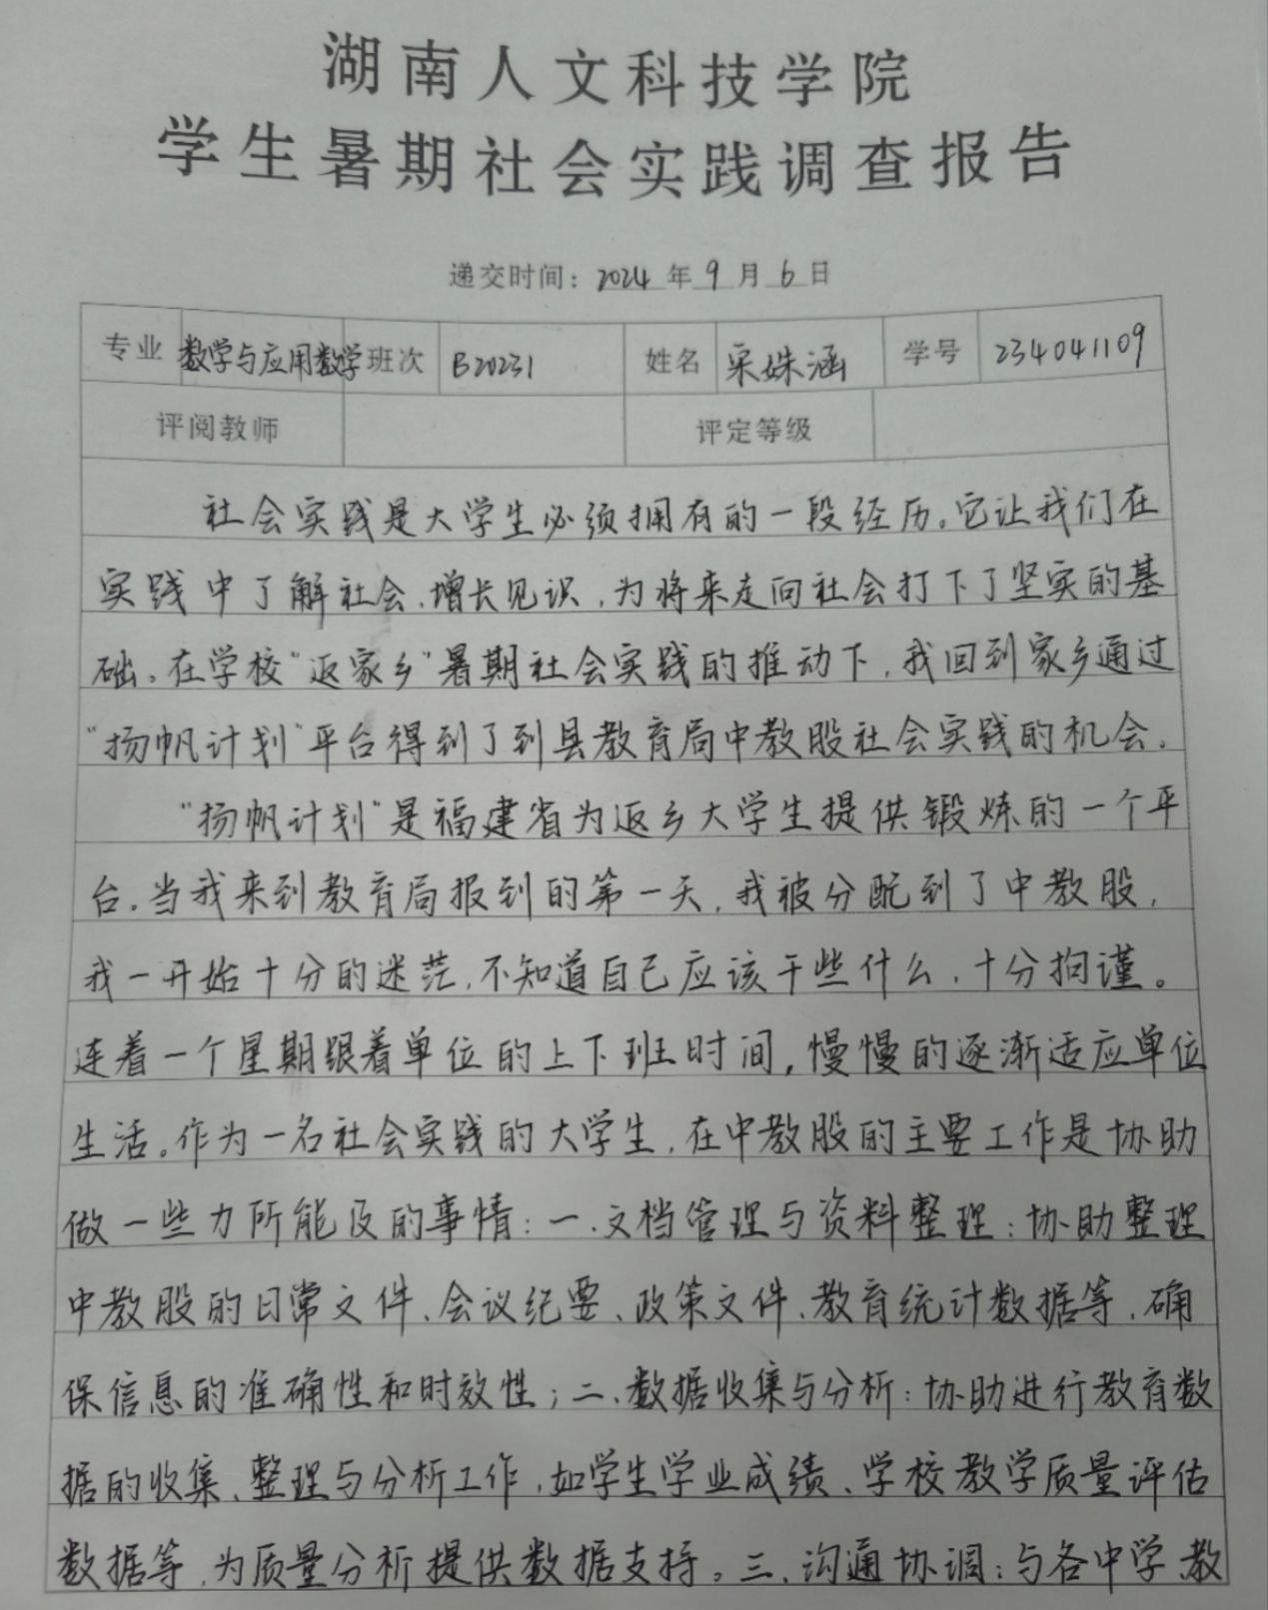 湖南人文科技学院
学生暑期社会实践调查报告
递交时间：2024年9月6日
专业 数学与应用数学 班次 B20231 姓名 宋姝涵 学号 234041109
评阅教师 评定等级
社会实践是大学生必须拥有的一段经历。它让我们在
实践中了解社会、增长见识，为将来走向社会打下了坚实的基
础。在学校“返家乡”暑期社会实践的推动下，我回到家乡通过
“扬帆计划”平台得到了到县教育局中教股社会实践的机会。
“扬帆计划”是福建省为返乡大学生提供锻炼的一个平
台。当我来到教育局报到的第一天，我被分配到了中教股，
我一开始十分的迷茫，不知道自己应该干些什么，十分拘谨。
连着一个星期跟着单位的上下班时间，慢慢的逐渐适应单位
生活。作为一名社会实践的大学生，在中教股的主要工作是协助
做一些力所能及的事情：一、文档管理与资料整理：协助整理
中教股的日常文件、会议纪要、政策文件、教育统计数据等，确
保信息的准确性和时效性；二、数据收集与分析：协助进行教育数
据的收集、整理与分析工作，如学生学业成绩、学校教学质量评估
数据等，为质量分析提供数据支持。三、沟通协调：与各中学、教